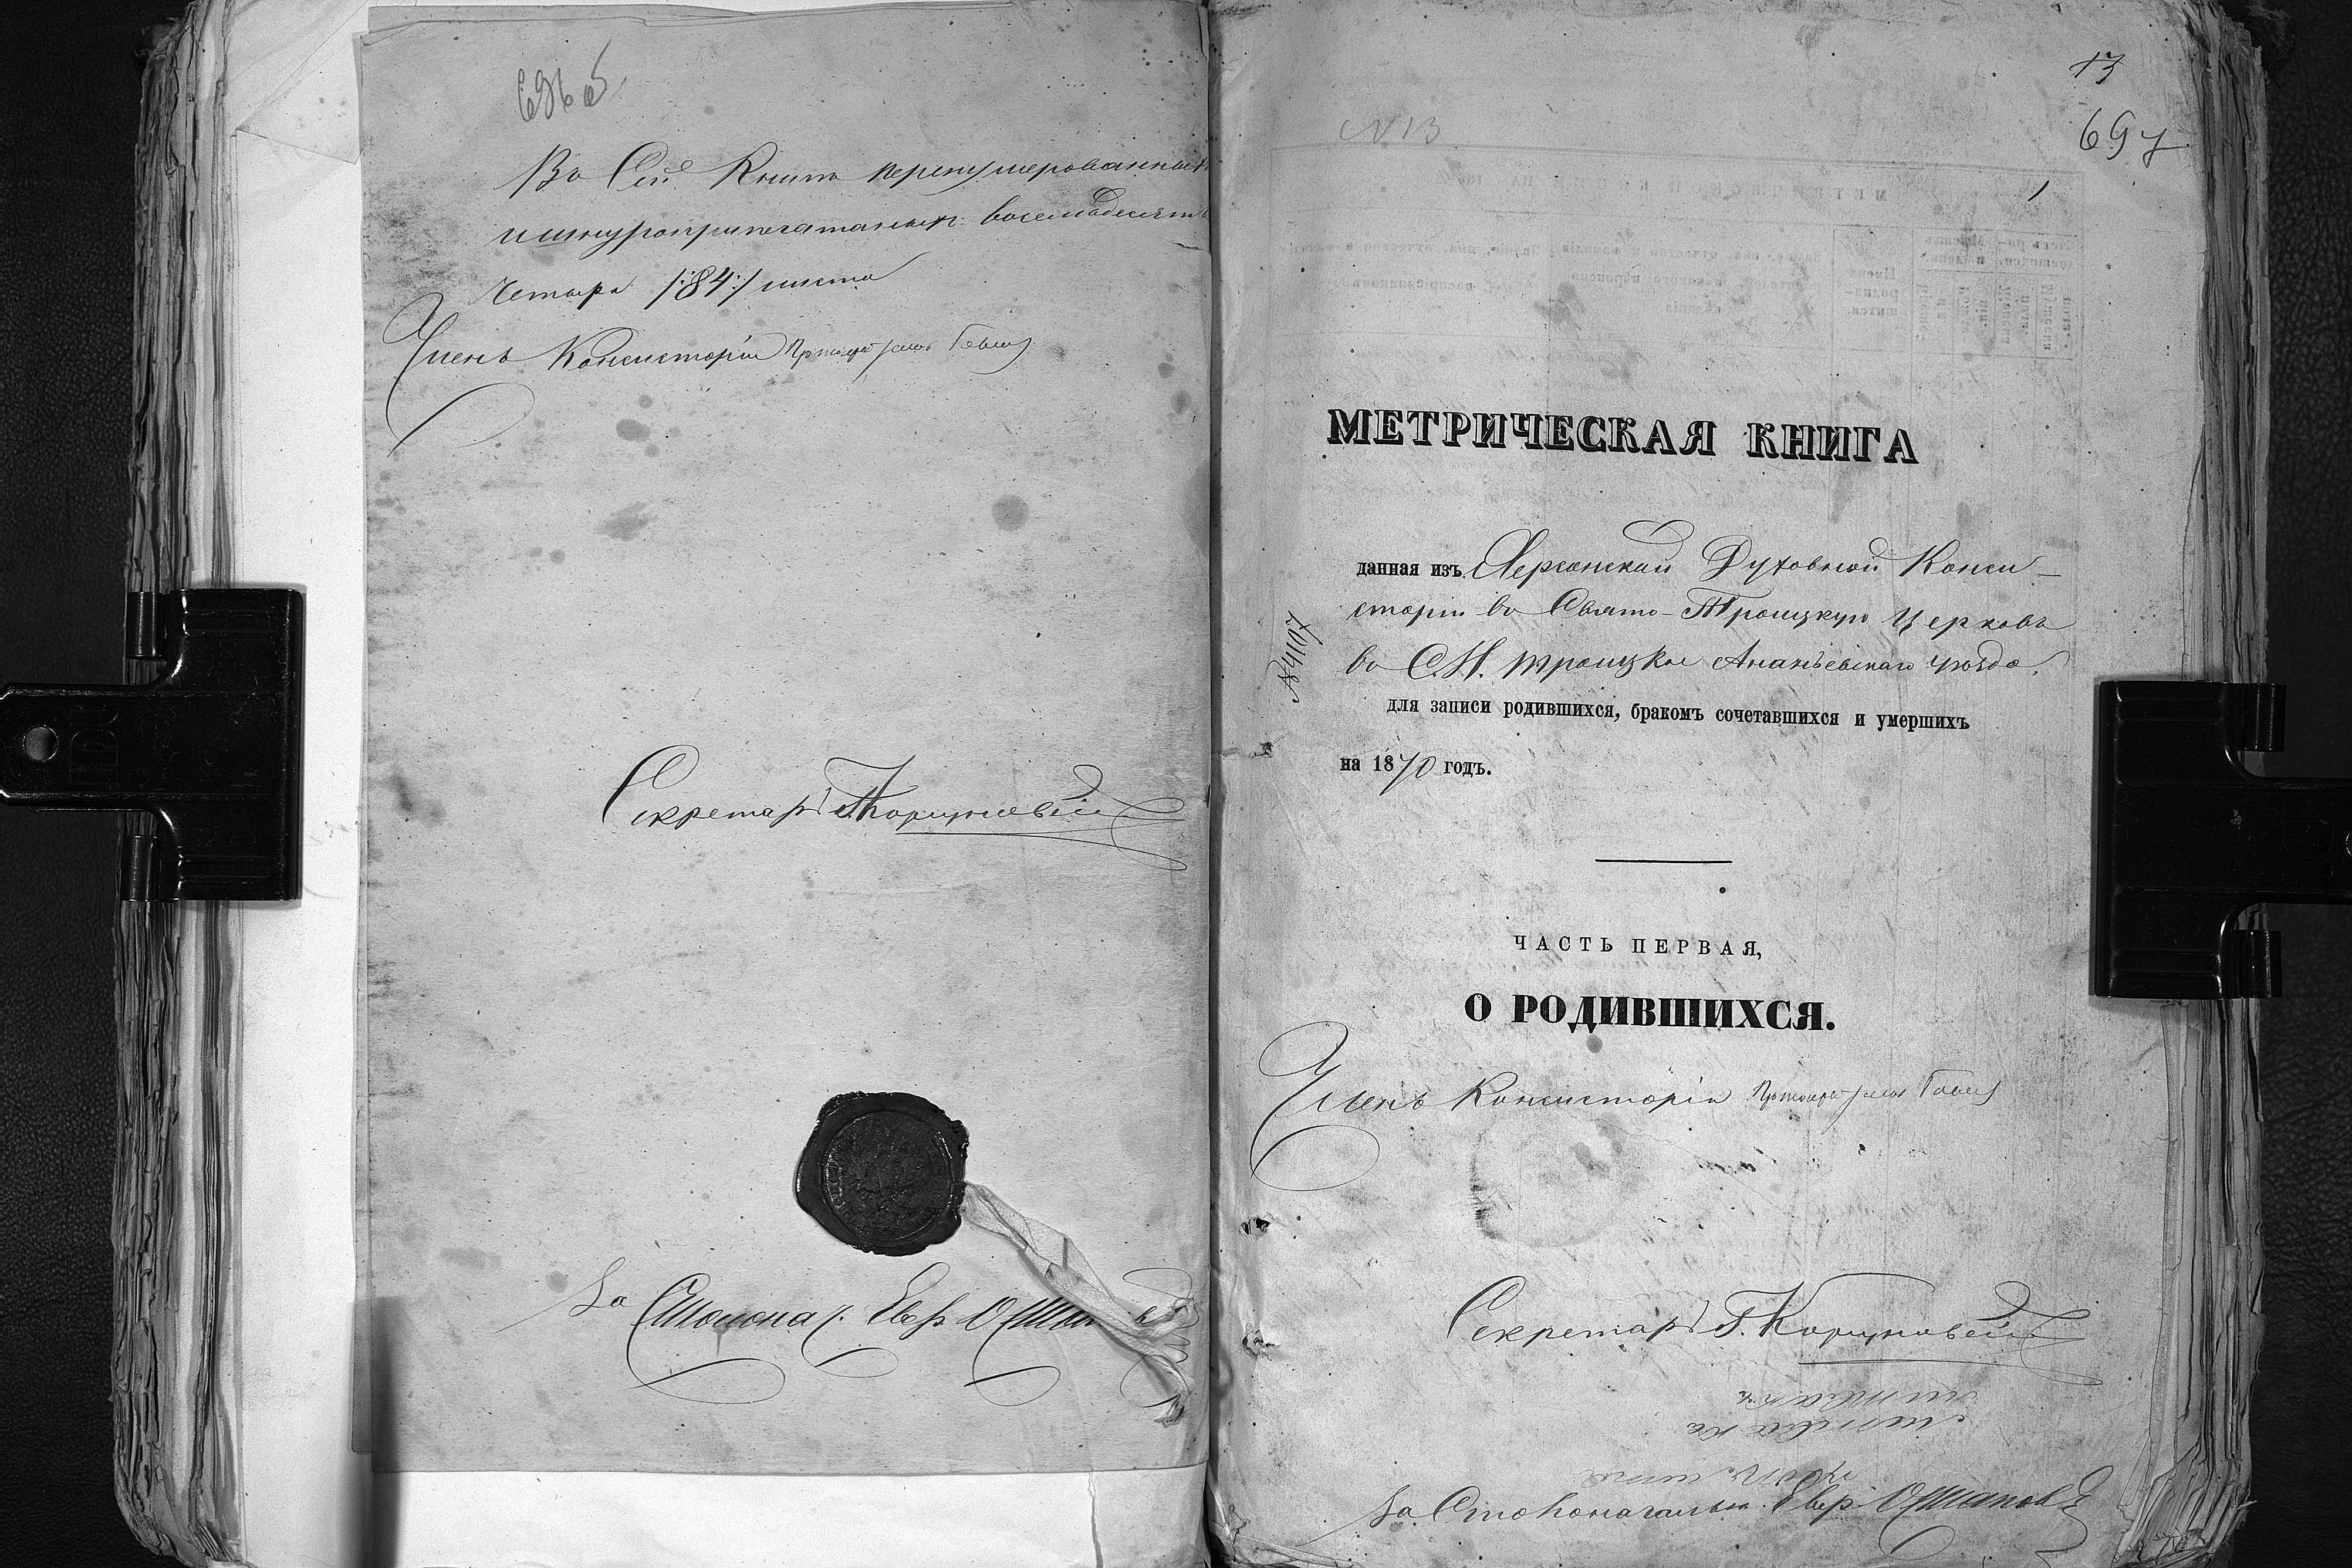 Въ Сей Книгѣ перенумерованныхъ
и шнуроприпечатанныхъ восемьдесятъ
четыре /:84:/ листа
Членъ Консисторіи Протоіерей
Секретарь
За Столонач. Евѳ.
13
697
N 13
1
МЕТРИЧЕСКАЯ КНИГА
данная изъ Херсонской Духовной Конси-
сторіи въ Свято-Троицкую Церковь
въ С. Н. Троицкое Ананьевскаго уѣзда,
№ 4107
для записи родившихся, бракомъ сочетавшихся и умершихъ
на 1870 годъ.
ЧАСТЬ ПЕРВАЯ,
О РОДИВШИХСЯ.
Членъ Консисторіи Протоіерей
Секретарь Г.
За Столоначальн.